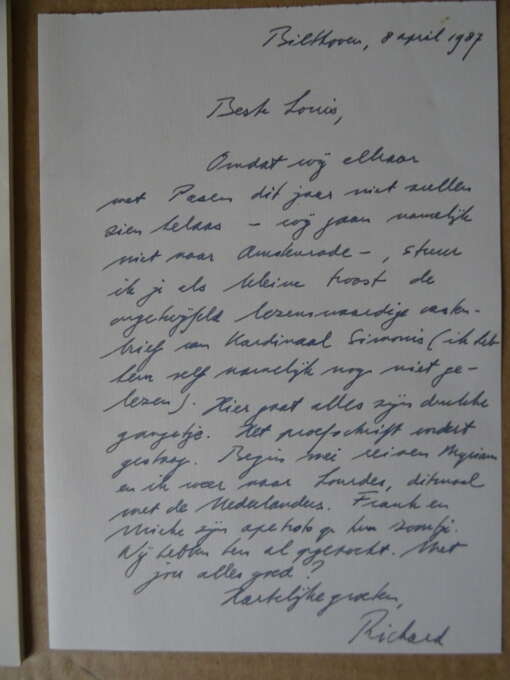 Bilthoven, 8 april 1987
Beste Louis,
Omdat wij elkaar
met Pasen dit jaar niet zullen
zien helaas – wij gaan namelijk
niet naar Amstenrade –, stuur
ik je als kleine troost de
ongetwijfeld lezenswaardige vasten-
brief van Kardinaal Simonis (ik heb
hem zelf namelijk nog niet ge-
lezen). Hier gaat alles zijn drukke
gangetje. Het proefschrift vordert
gestaag. Begin mei reizen Myriam
en ik weer naar Lourdes, ditmaal
met de Nederlanders. Frank en
Mieke zijn apetrots op hun zoontje.
Wij hebben hen al opgezocht. Met
jou alles goed?
Hartelijke groeten,
Richard